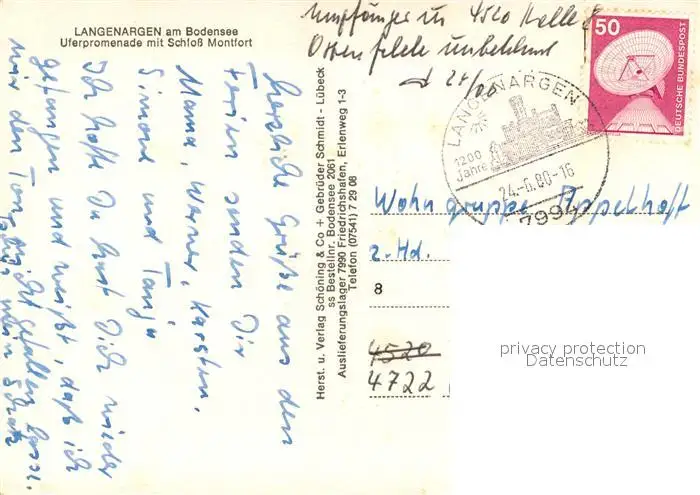 LANGENARGEN am Bodensee
Uferpromenade mit Schloß Montfort
Empfänger in 4520 Melle
unbekannt
50
DEUTSCHE BUNDESPOST
LANGENARGEN
1200 Jahre
24.-6.80-16
7994
herzliche Grüße aus den
Ferien senden Dir
Mama, Werner, Karsten,
Simone und Tanja
Ich hoffe Du hast Dich wieder
gefangen und weißt, daß ich
mir den Ton nicht gefallen lasse.
Herst. u. Verlag Schöning & Co + Gebrüder Schmidt - Lübeck
ss Bestellnr. Bodensee 2061
Auslieferungslager 7990 Friedrichshafen, Erlenweg 1-3
Telefon (07541) 7 29 08
Wohngruppe Appelhoft
z. Hd.
8
4520
4722
privacy protection
Datenschutz